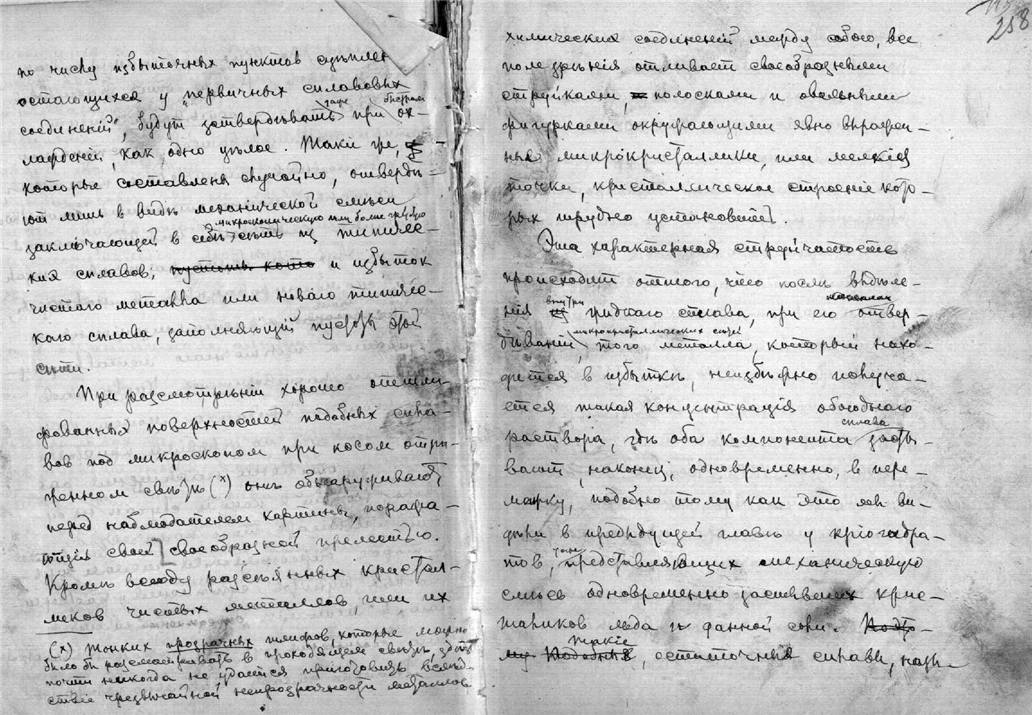 по числу избыточных пунктов сцѣплен
остающихся у "первичных сплавовых
даже быстром
соединений", будут затвердѣвать при ох-
лажденіи, как одно цѣлое. Такіе же,
которые составлены случайно, отвердѣ-
ют лишь в видѣ механической смѣси
микроскопическую или болѣе грубую
заключающей в себѣ сѣть из типиче-
ских сплавов, и избыток
чистаго металла или новаго типиче-
скаго сплава, заполняющій пустоты этой
сѣти.
При разсмотрѣніи хорошо отшли-
фованных поверхностей подобных спла-
вов под микроскопом при косом отра-
женном свѣтѣ (х) онѣ обнаруживают
перед наблюдателем картины, поража-
ющія своей своеобразной прелестью.
Кромѣ всюду разсѣянных кристал-
ликов чистых металлов, или их
(х) Тонких прозрачных шлифов, которые можно
было бы разсматривать в проходящем свѣтѣ, здѣсь
почти никогда не удается приготовить вслѣд-
ствіе чрезвычайной непрозрачности металлов
258
химических соединеній между собою, все
поле зрѣнія отливает своеобразными
струйками, полосками и овальными
фигурками окружающими явно выражен-
ные микрокристаллики, или мелкія
точки, кристаллическое строеніе кото-
рых трудно установить.
Эта характерная струйчатость
происходит оттого, что послѣ выдѣле-
внутри
нія жидкаго сплава, при его отвер-
микрокристаллических сѣтей
дѣваніи, того металла, который нахо-
дится в избыткѣ, неизбѣжно получа-
ется такая концентрація обоюднаго
сплава
раствора, гдѣ оба компонента засты-
вают, наконец, одновременно, в пере-
межку, подобно тому как это мы ви-
дѣли в предыдущей главѣ у кріогидра-
тов, тоже представляющих механическую
смѣсь одновременно застывших крис-
талликов льда и данной соли.
Такіе
остаточные сплавы, назы-